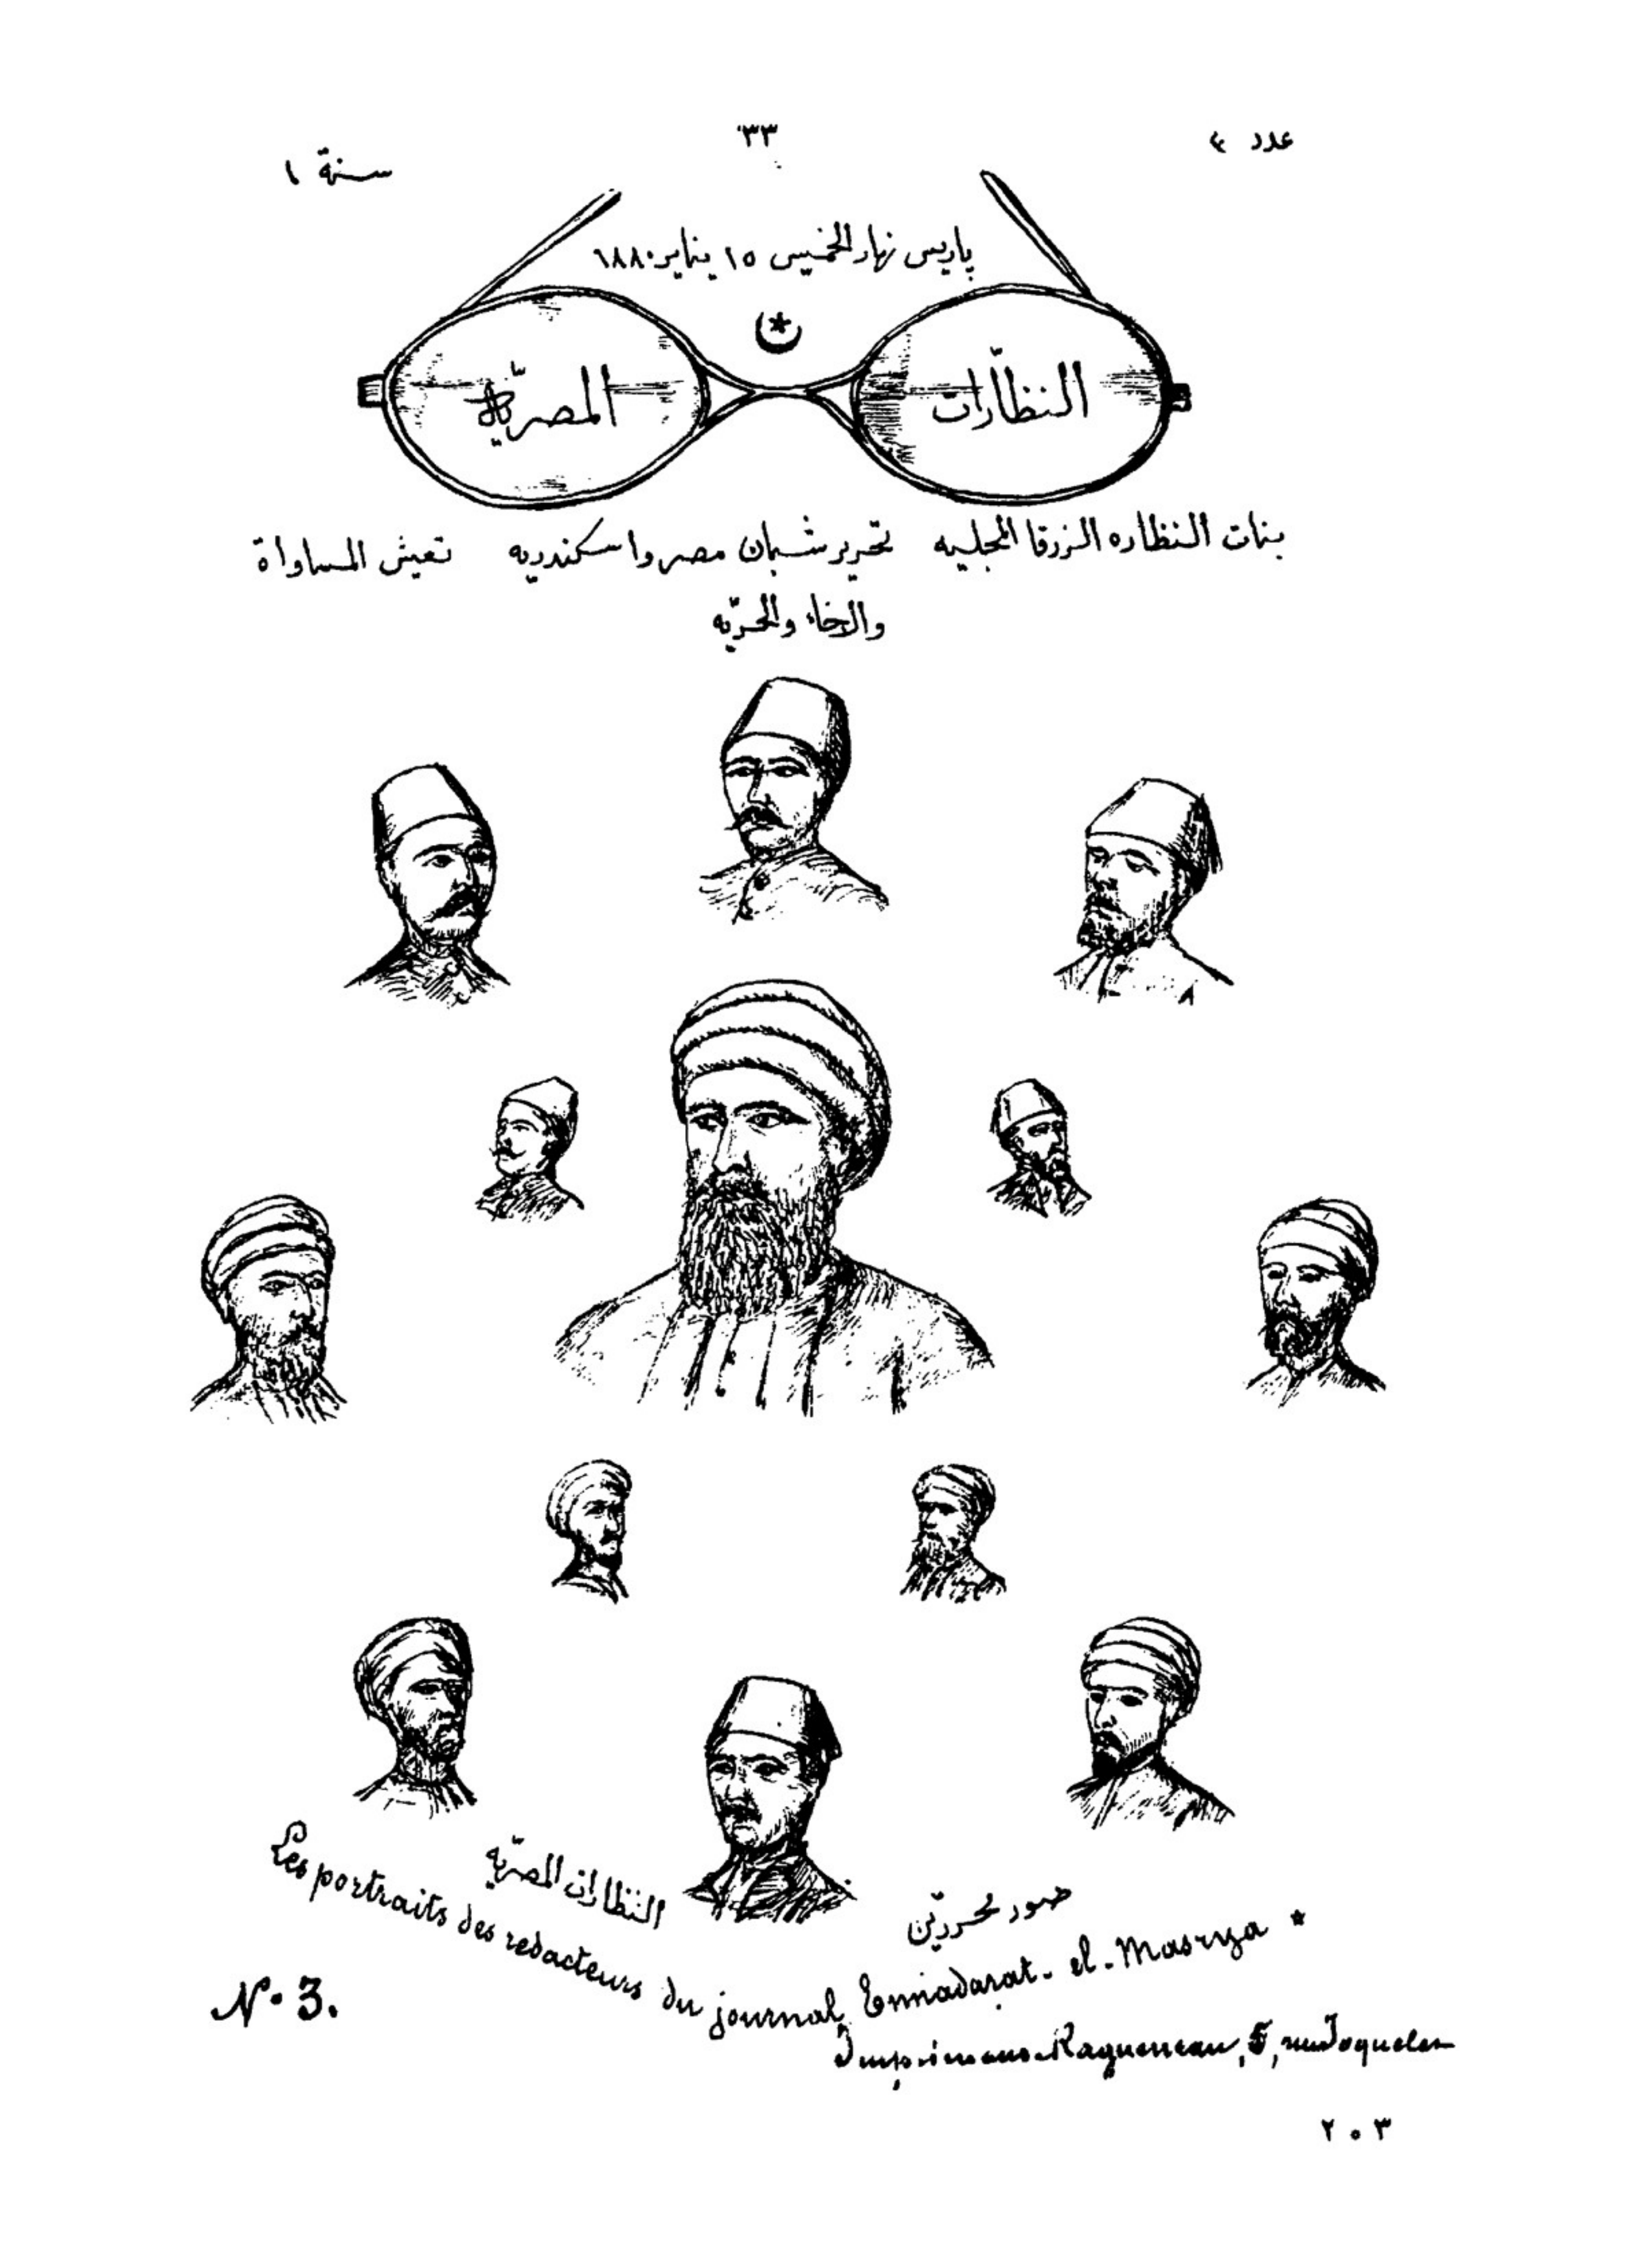 عدد ٤
٣٣
سنة ١
پاريس نهار الخميس ١٥ يناير ١٨٨٠
النظّارات
المصريّة
بنات النظاره الزرقا المجليه تحرير شبان مصر واسكندريه تعيش المساواة
والاخاء والحريّه
صور محررين
النظارات المصريّه
Les portraits des redacteurs du journal Ennadarat-el-Masrya
N. 3.
Ragueneau, 5, rue Joquelet
٢٠٣